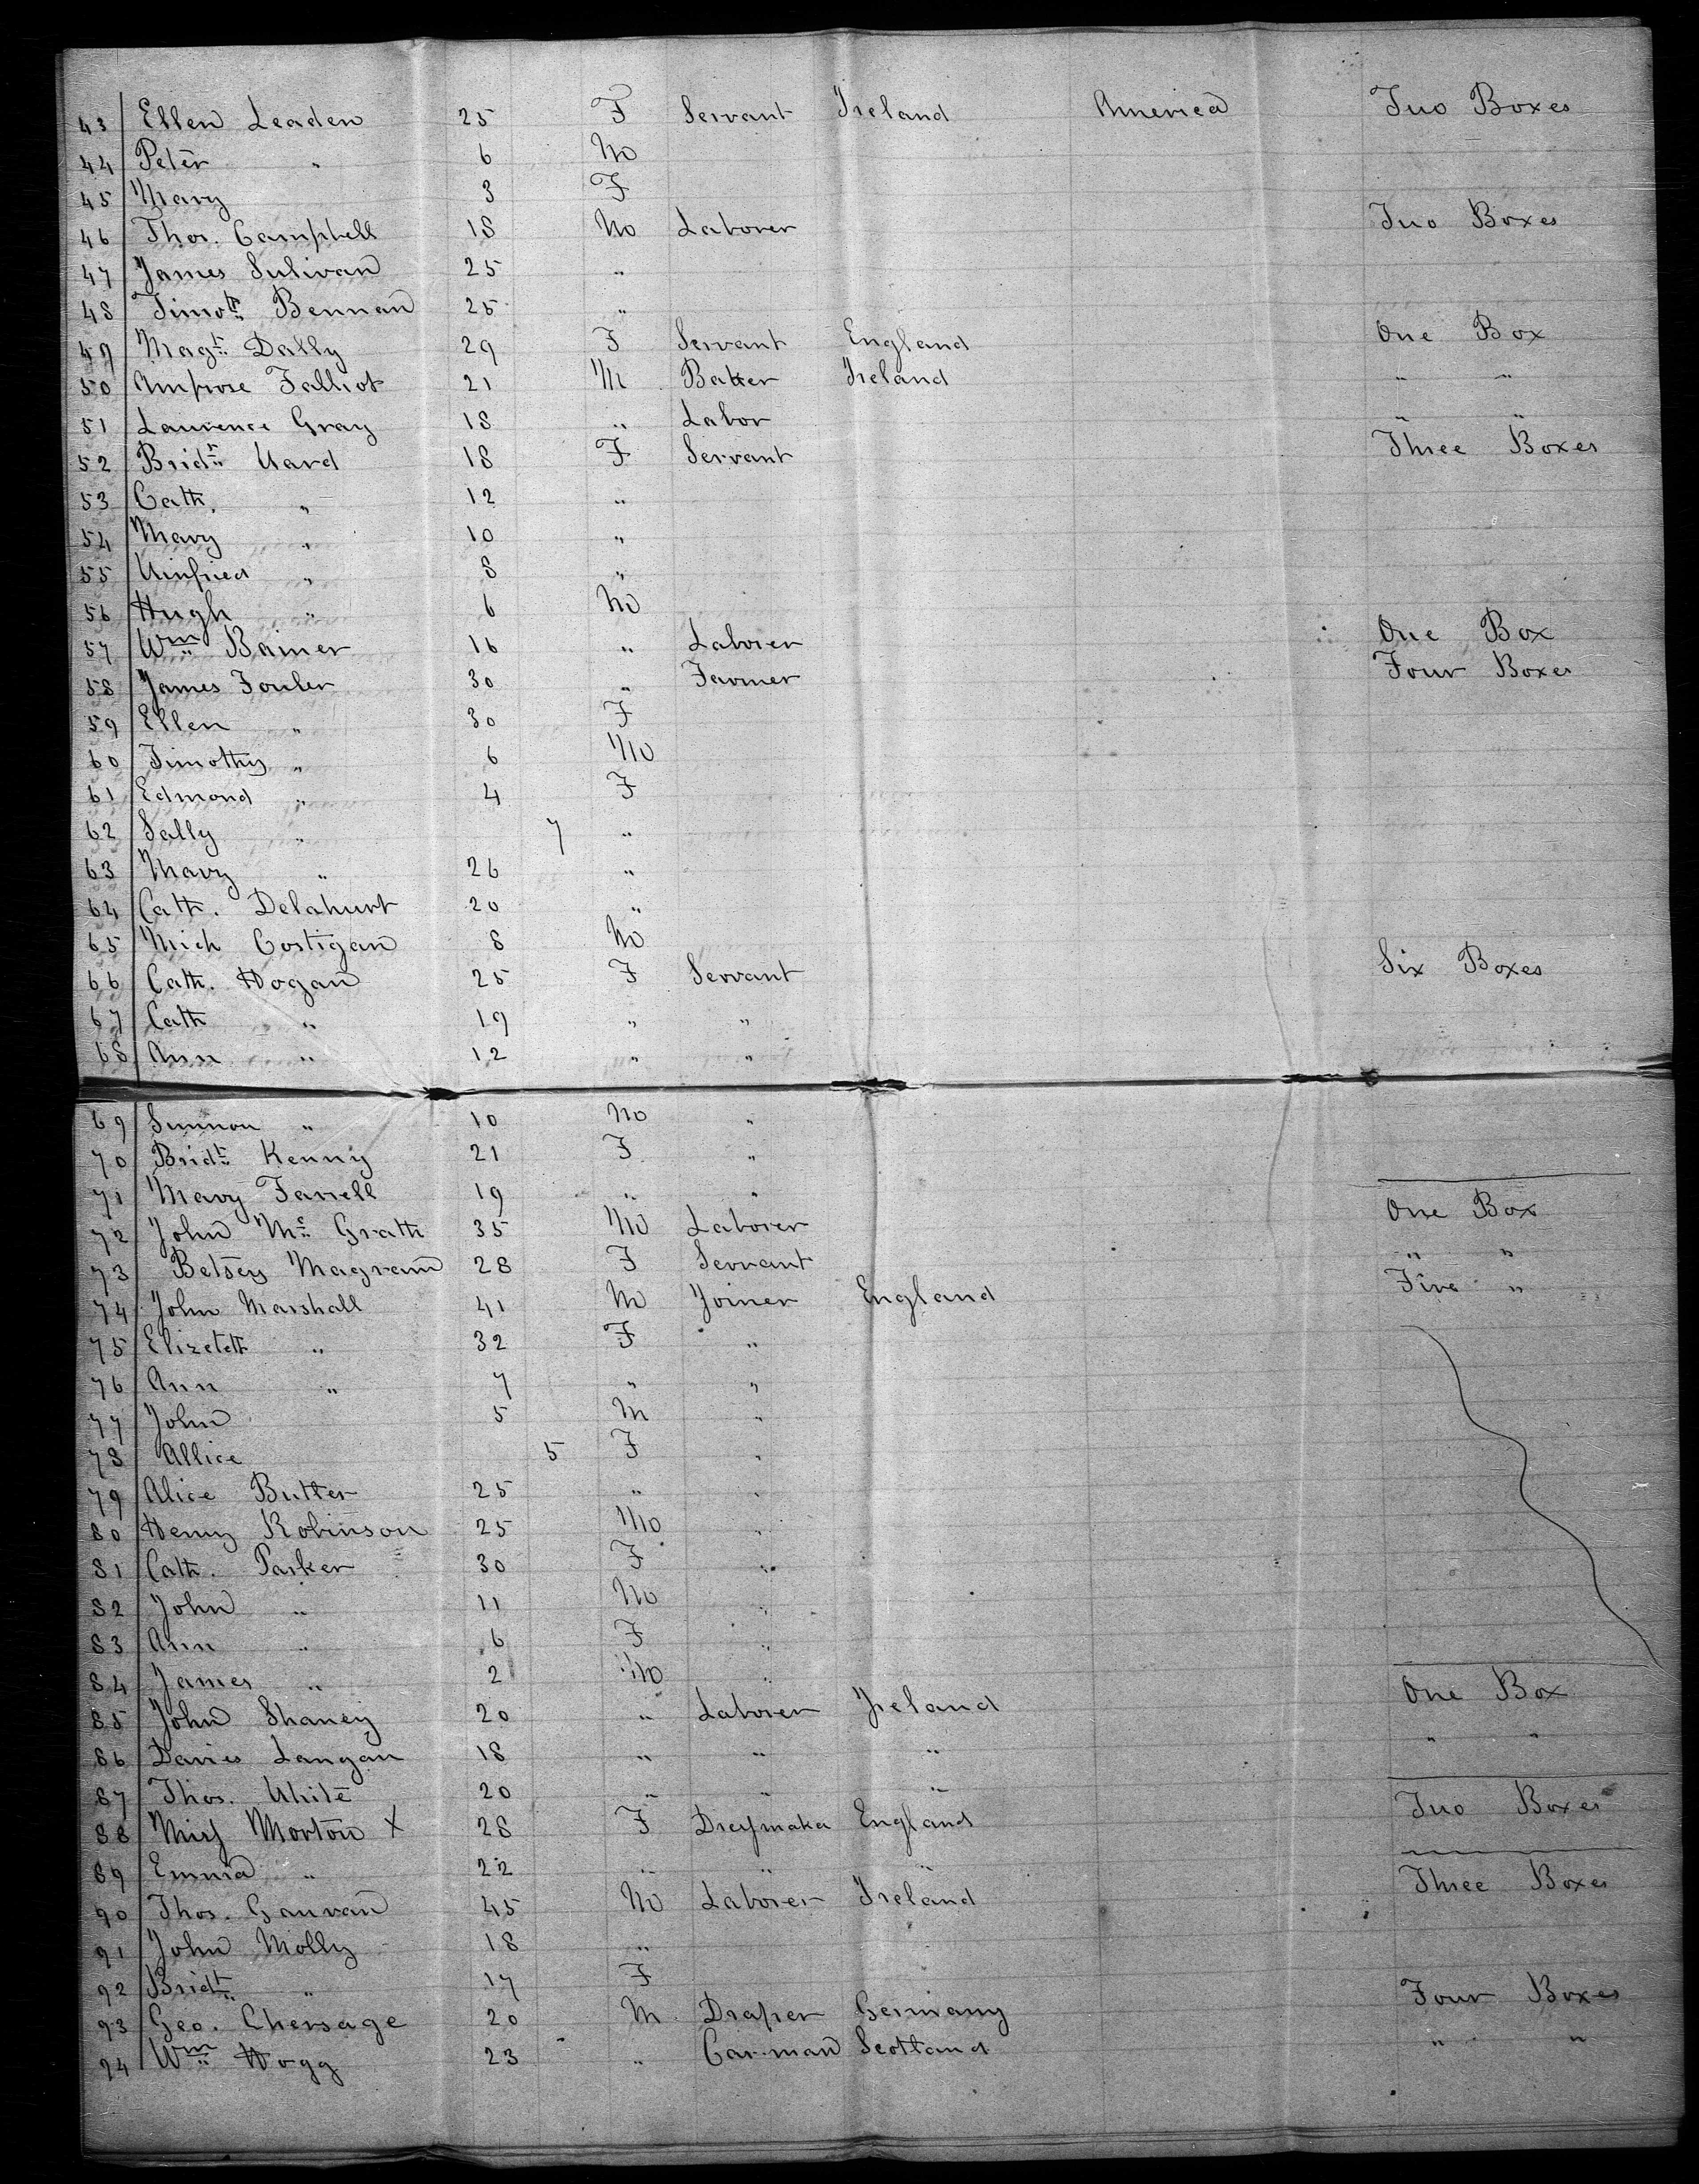 43 Ellen Leaden 25 F Servant Ireland America Two Boxes
44 Peter " 6 M
45 Mary 3 F
46 Thos. Campbell 18 M Laborer Two Boxes
47 James Sulivan 25 "
48 Timoth Bennan 25 "
49 Magt Dally 29 F Servant England One Box
50 Ambrose Falliot 21 M Baker Ireland " "
51 Laurence Gray 18 " Labor " "
52 Bridt Ward 18 F Servant Three Boxes
53 Cath. " 12 "
54 Mary " 10 "
55 Winfried " 8 "
56 Hugh " 6 M
57 Wm Bainer 16 " Laborer One Box
58 James Fouler 30 " Farmer Four Boxes
59 Ellen " 30 F
60 Timothy " 6 M
61 Edmond " 4 F
62 Sally " 7 "
63 Mary " 26 "
64 Cath. Delahurt 20 "
65 Mich Costigan 8 M
66 Cath. Hogan 25 F Servant Six Boxes
67 Cath " 19 " "
68 Ann " 12 " "
69 " 10 M "
70 Bridt Kenny 21 F "
71 Mary Farrell 19 " "
72 John Mc Grath 35 M Laborer One Box
73 Betsey 28 F Servant " "
74 John Marshall 41 M Joiner England Five "
75 Elizabeth " 32 F "
76 Ann " 7 " "
77 John 5 M "
78 Allice 5 F "
79 Alice Butter 25 " "
80 Henry Robinson 25 M "
81 Cath. Parker 30 F "
82 John " 11 M "
83 Ann " 6 F "
84 James " 2 M "
85 John Shaney 20 " Laborer Ireland One Box
86 Davies Langan 18 " " " " "
87 Thos. White 20 " " "
88 Miss Morton X 28 F Dressmaka England Two Boxes
89 Emma " 22 " " "
90 Thos. Gauvan 45 M Laborer Ireland Three Boxes
91 John Molly 18 "
92 Bridt " 17 F
93 Geo. Chersage 20 M Draper Germany Four Boxes
94 Wm Hogg 23 " Carman Scotland " "